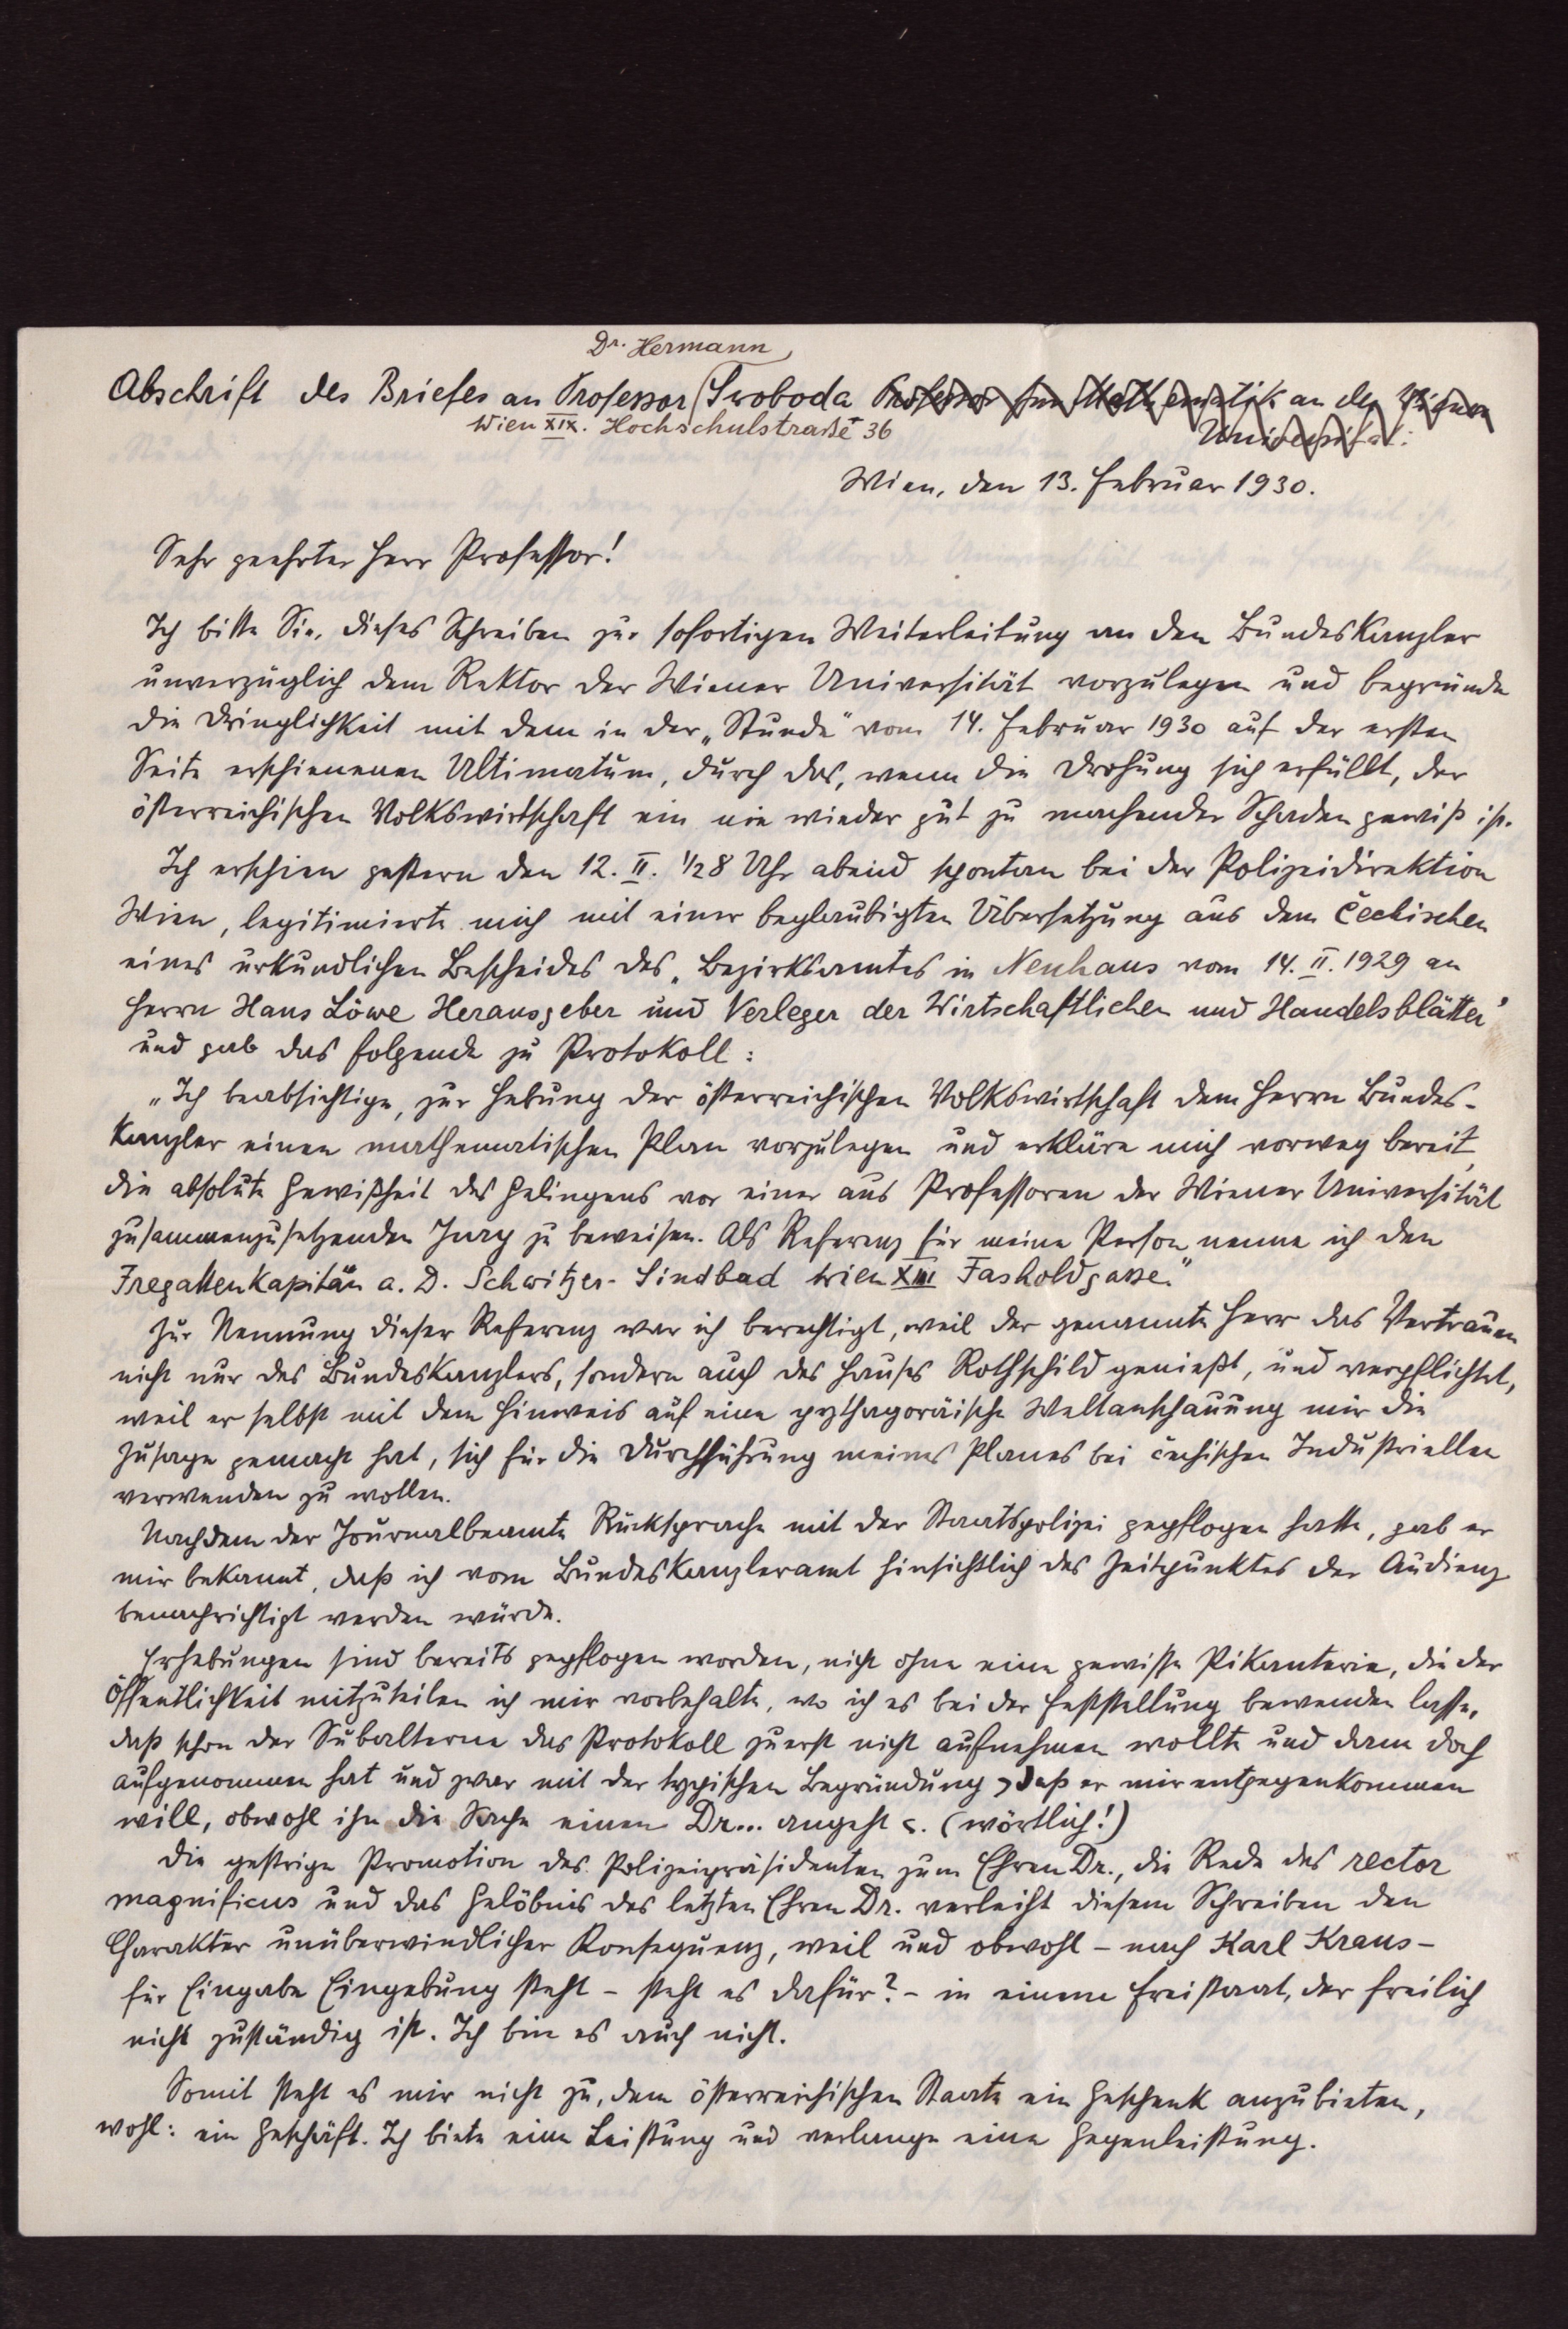 Dr. Hermann
Abschrift des Briefes an Professor Swoboda Professor für Mathematik an der Wiener
Wien XIX. Hochschulstraße 36
Universität:
Wien, den 13. Februar 1930.
Sehr geehrter Herr Professor!
Ich bitte Sie, dieses Schreiben zur sofortigen Weiterleitung an den Bundeskanzler
unverzüglich dem Rektor der Wiener Universität vorzulegen und begründe
die Dringlichkeit mit dem in der „Stunde“ vom 14. Februar 1930 auf der ersten
Seite erschienenen Ultimatum, durch das, wenn die Drohung sich erfüllt, der
österreichischen Volkswirtschaft ein nie wieder gut zu machender Schaden gewiß ist.
Ich erschien gestern den 12. II. 1/2 8 Uhr abend spontan bei der Polizeidirektion
Wien, legitimierte mich mit einer beglaubigten Übersetzung aus dem Čechischen
eines urkundlichen Bescheides des „Bezirksamtes in Neuhaus vom 14. II. 1929 an
Herrn Hans Löwe Herausgeber und Verleger der Wirtschaftlichen und Handelsblätter“
und gab das folgende zu Protokoll:
„Ich beabsichtige, zur Hebung der österreichischen Volkswirtschaft dem Herrn Bundes-
kanzler einen mathematischen Plan vorzulegen und erkläre mich vorweg bereit,
die absolute Gewißheit des Gelingens vor einer aus Professoren der Wiener Universität
zusammenzusetzenden Jury zu beweisen. Als Referenz für meine Person nenne ich den
Fregattenkapitän a. D. Schwitzer-Sindbad Wien XIII Fasholdgasse.“
Zur Nennung dieser Referenz war ich berechtigt, weil der genannte Herr das Vertrauen
nicht nur des Bundeskanzlers, sondern auch des Hauses Rothschild genießt, und verpflichtet,
weil er selbst mit dem Hinweis auf eine pythagoräische Weltanschauung mir die
Zusage gemacht hat, sich für die Durchführung meines Planes bei čechischen Industriellen
verwenden zu wollen.
Nachdem der Journalbeamte Rücksprache mit der Staatspolizei gepflogen hatte, gab er
mir bekannt, daß ich vom Bundeskanzleramt hinsichtlich des Zeitpunktes der Audienz
benachrichtigt werden würde.
Erhebungen sind bereits gepflogen worden, nicht ohne eine gewisse Pikanterie, die der
Öffentlichkeit mitzuteilen ich mir vorbehalte, wo ich es bei der Feststellung bewenden lasse,
daß schon der Subalterne das Protokoll zuerst nicht aufnehmen wollte und dann doch
aufgenommen hat und zwar mit der typischen Begründung > daß er mir entgegenkommen
will, obwohl ihn die Sache einen Dr... angeht <. (wörtlich!)
Die gestrige Promotion des Polizeipräsidenten zum Ehren Dr., die Rede des rector
magnificus und das Gelöbnis des letzten Ehren Dr. verleiht diesem Schreiben den
Charakter unüberwindlicher Konsequenz, weil und obwohl – nach Karl Kraus –
für Eingabe Eingebung steht – steht es dafür? – in einem Freistaat, der freilich
nicht zuständig ist. Ich bin es auch nicht.
Somit steht es mir nicht zu, dem österreichischen Staate ein Geschenk anzubieten,
wohl: ein Geschäft. Ich biete eine Leistung und verlange eine Gegenleistung.